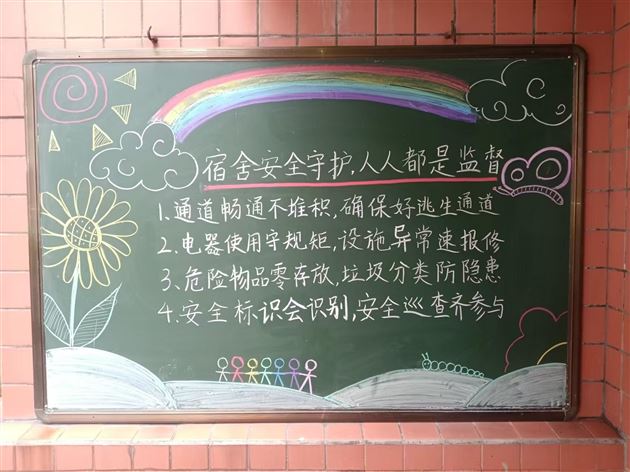 宿舍安全守护,人人都是监督
1.通道畅通不堆积,确保好逃生通道
2.电器使用守规矩,设施异常速报修
3.危险物品零存放,垃圾分类防隐患
4.安全标识会识别,安全巡查齐参与